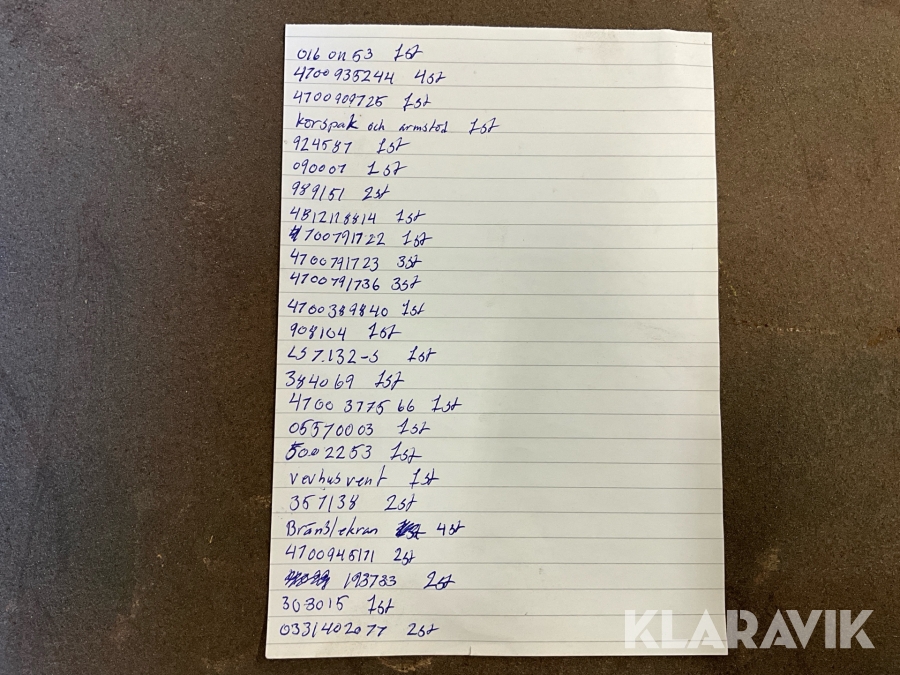 016 011 53 1st
4700935244 4st
4700909725 1st
korspak och armstöd 1st
924587 1st
090007 1st
989151 2st
4812118814 1st
4700791722 1st
4700791723 3st
4700791736 3st
4700389840 1st
908104 1st
LS7.132-S 1st
384069 1st
4700 3775 66 1st
05570003 1st
5002253 1st
vevhusvent 1st
357138 2st
Bränslekran 4st
4700945171 2st
193733 2st
303015 1st
0331402077 2st
KLARAVIK